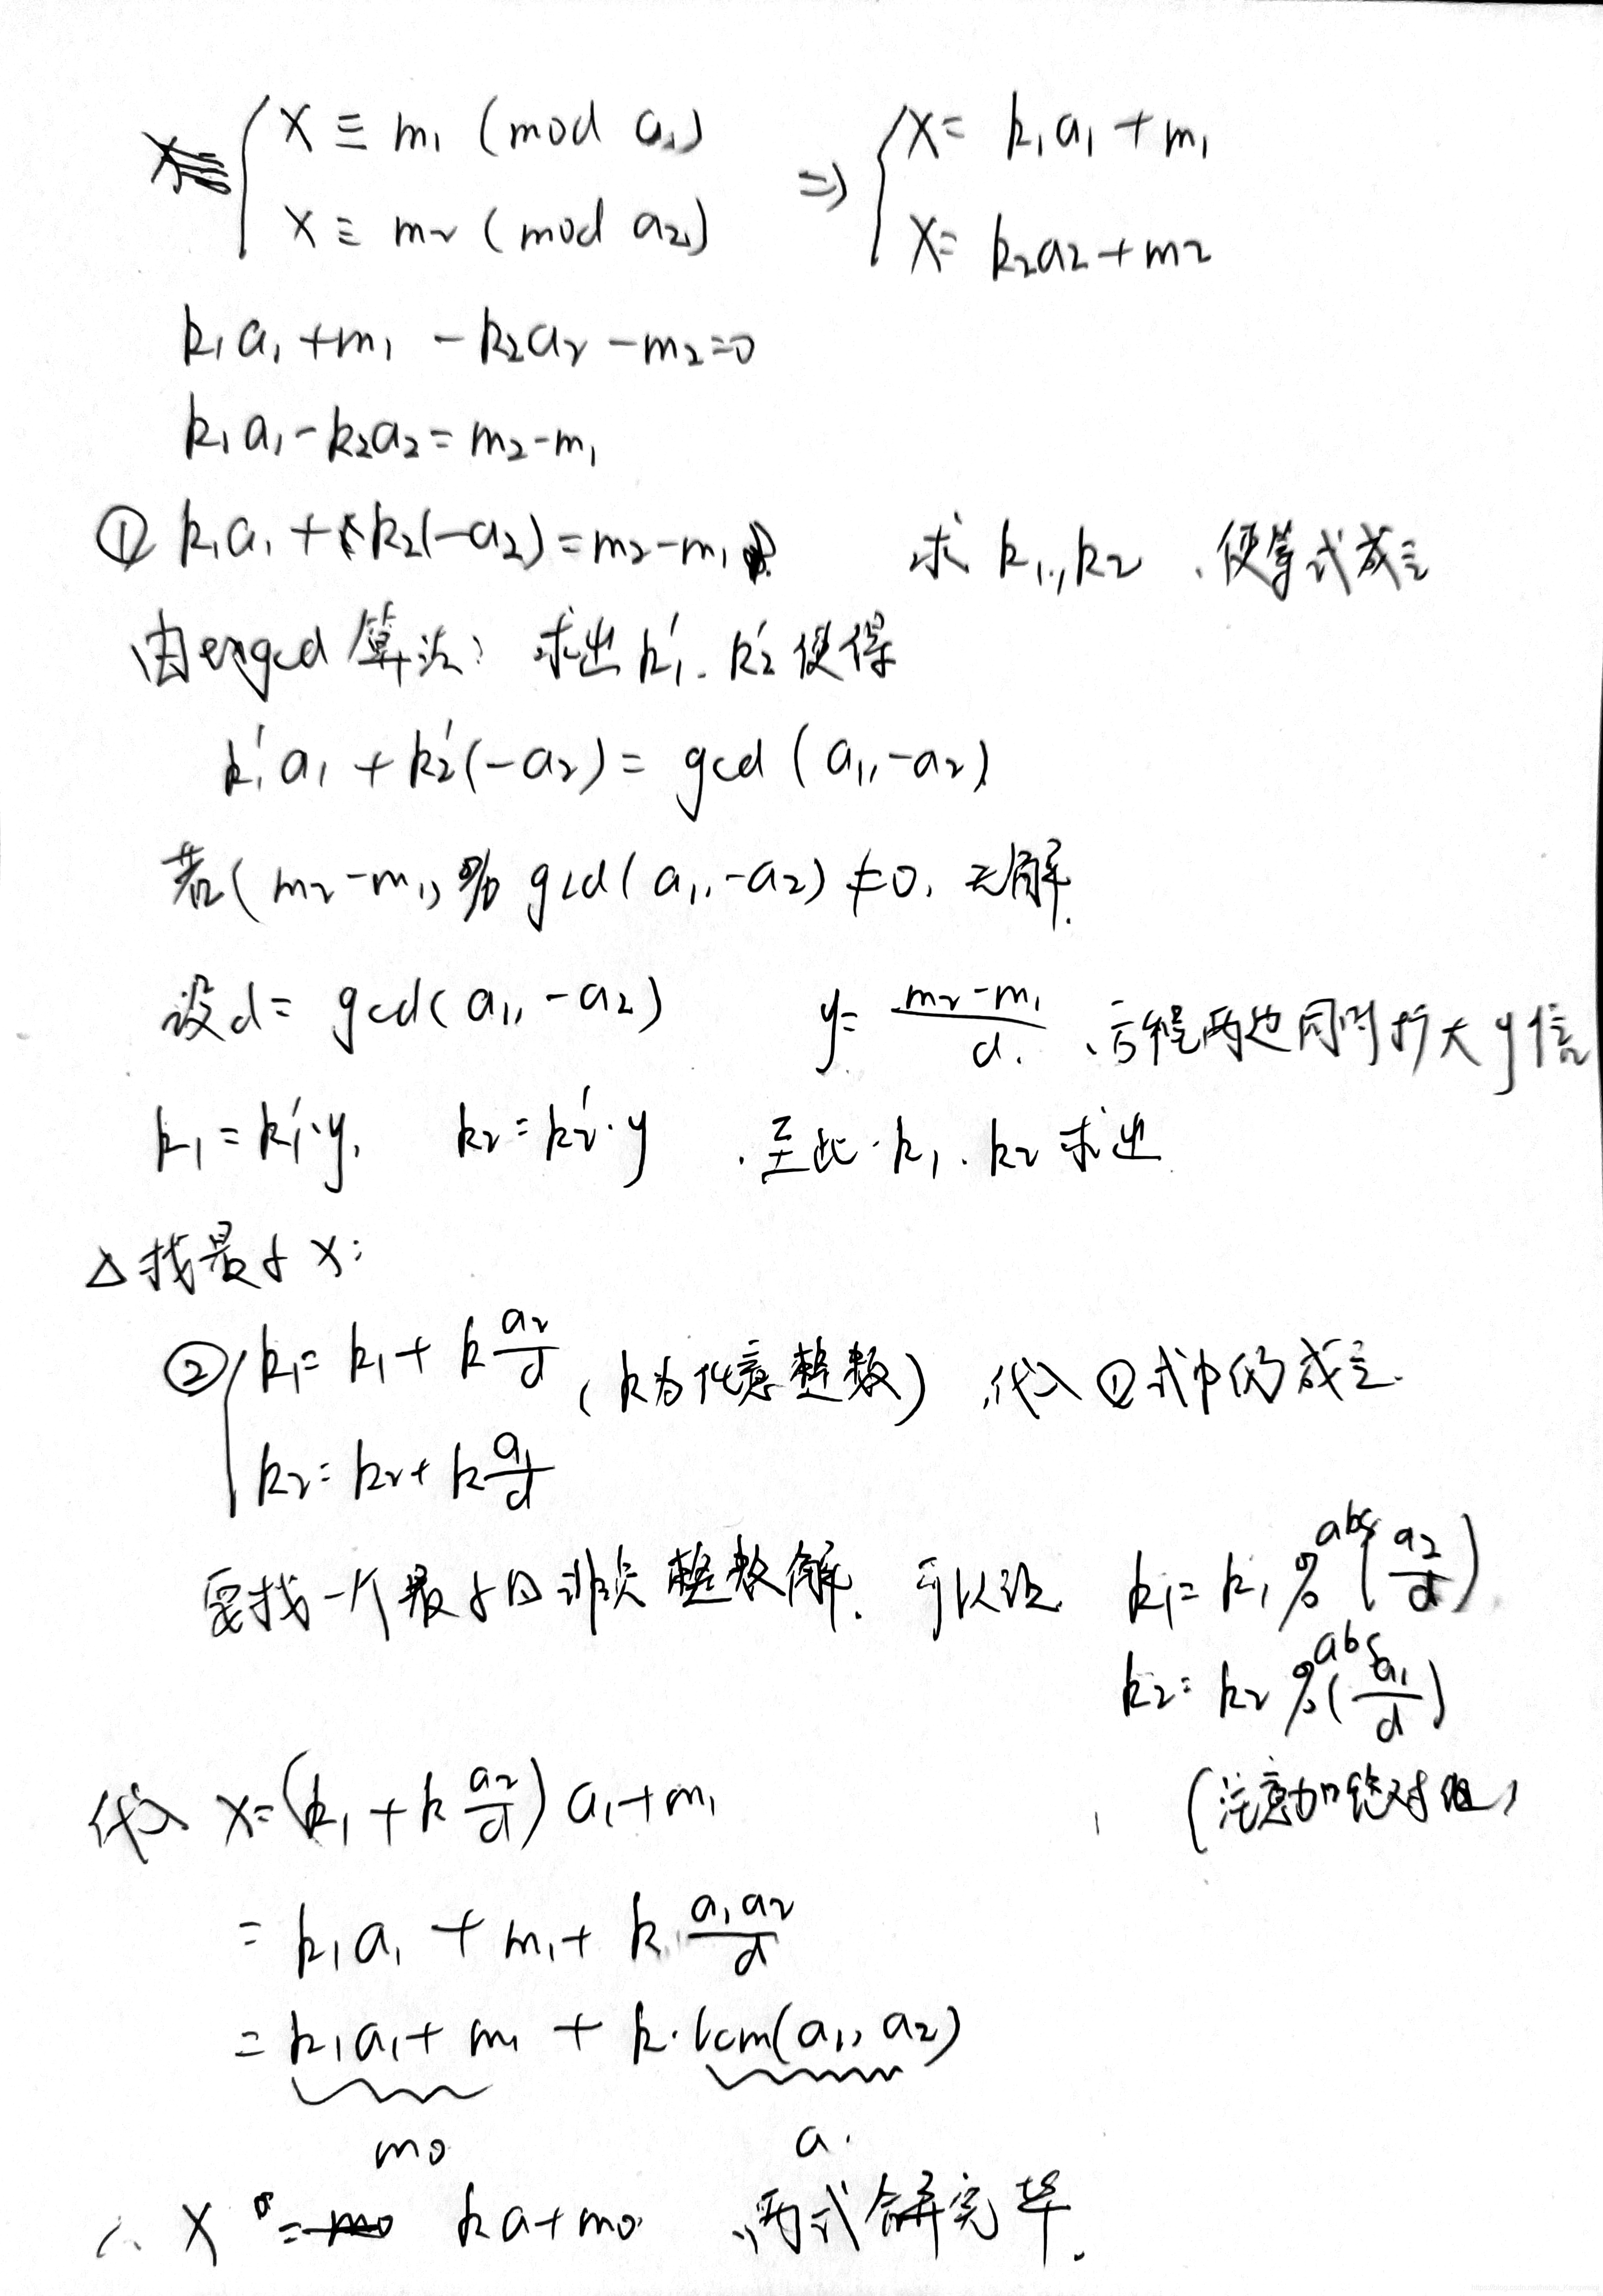 { x ≡ m₁ (mod a₁) ⇒ { x = k₁a₁ + m₁
x ≡ m₂ (mod a₂) x = k₂a₂ + m₂
k₁a₁ + m₁ - k₂a₂ - m₂ = 0
k₁a₁ - k₂a₂ = m₂ - m₁
① k₁a₁ + k₂(-a₂) = m₂ - m₁ 求 k₁, k₂, 使等式成立
由exgcd 算法: 求出 k₁', k₂' 使得
k₁'a₁ + k₂'(-a₂) = gcd (a₁, -a₂)
若(m₂ - m₁) % gcd(a₁, -a₂) ≠ 0, 无解.
设d = gcd(a₁, -a₂) y = (m₂ - m₁)/d. 、方程两边同时扩大 y 倍
k₁ = k₁'·y, k₂ = k₂'·y . 至此. k₁. k₂ 求出
△ 找最小 x:
② { k₁ = k₁ + k a₂/d (k为任意整数) 代入 ①式中仍成立.
k₂ = k₂ + k a₁/d
要找一个最小的非负整数解. 可以让 k₁ = k₁ % abs(a₂/d)
k₂ = k₂ % abs(a₁/d)
代入 x = (k₁ + k a₂/d) a₁ + m₁ (注意加绝对值)
= k₁a₁ + m₁ + k a₁a₂/d
= k₁a₁ + m₁ + k·lcm(a₁, a₂)
m₀ a.
∴ x = ka + m₀ 两式合并完毕.